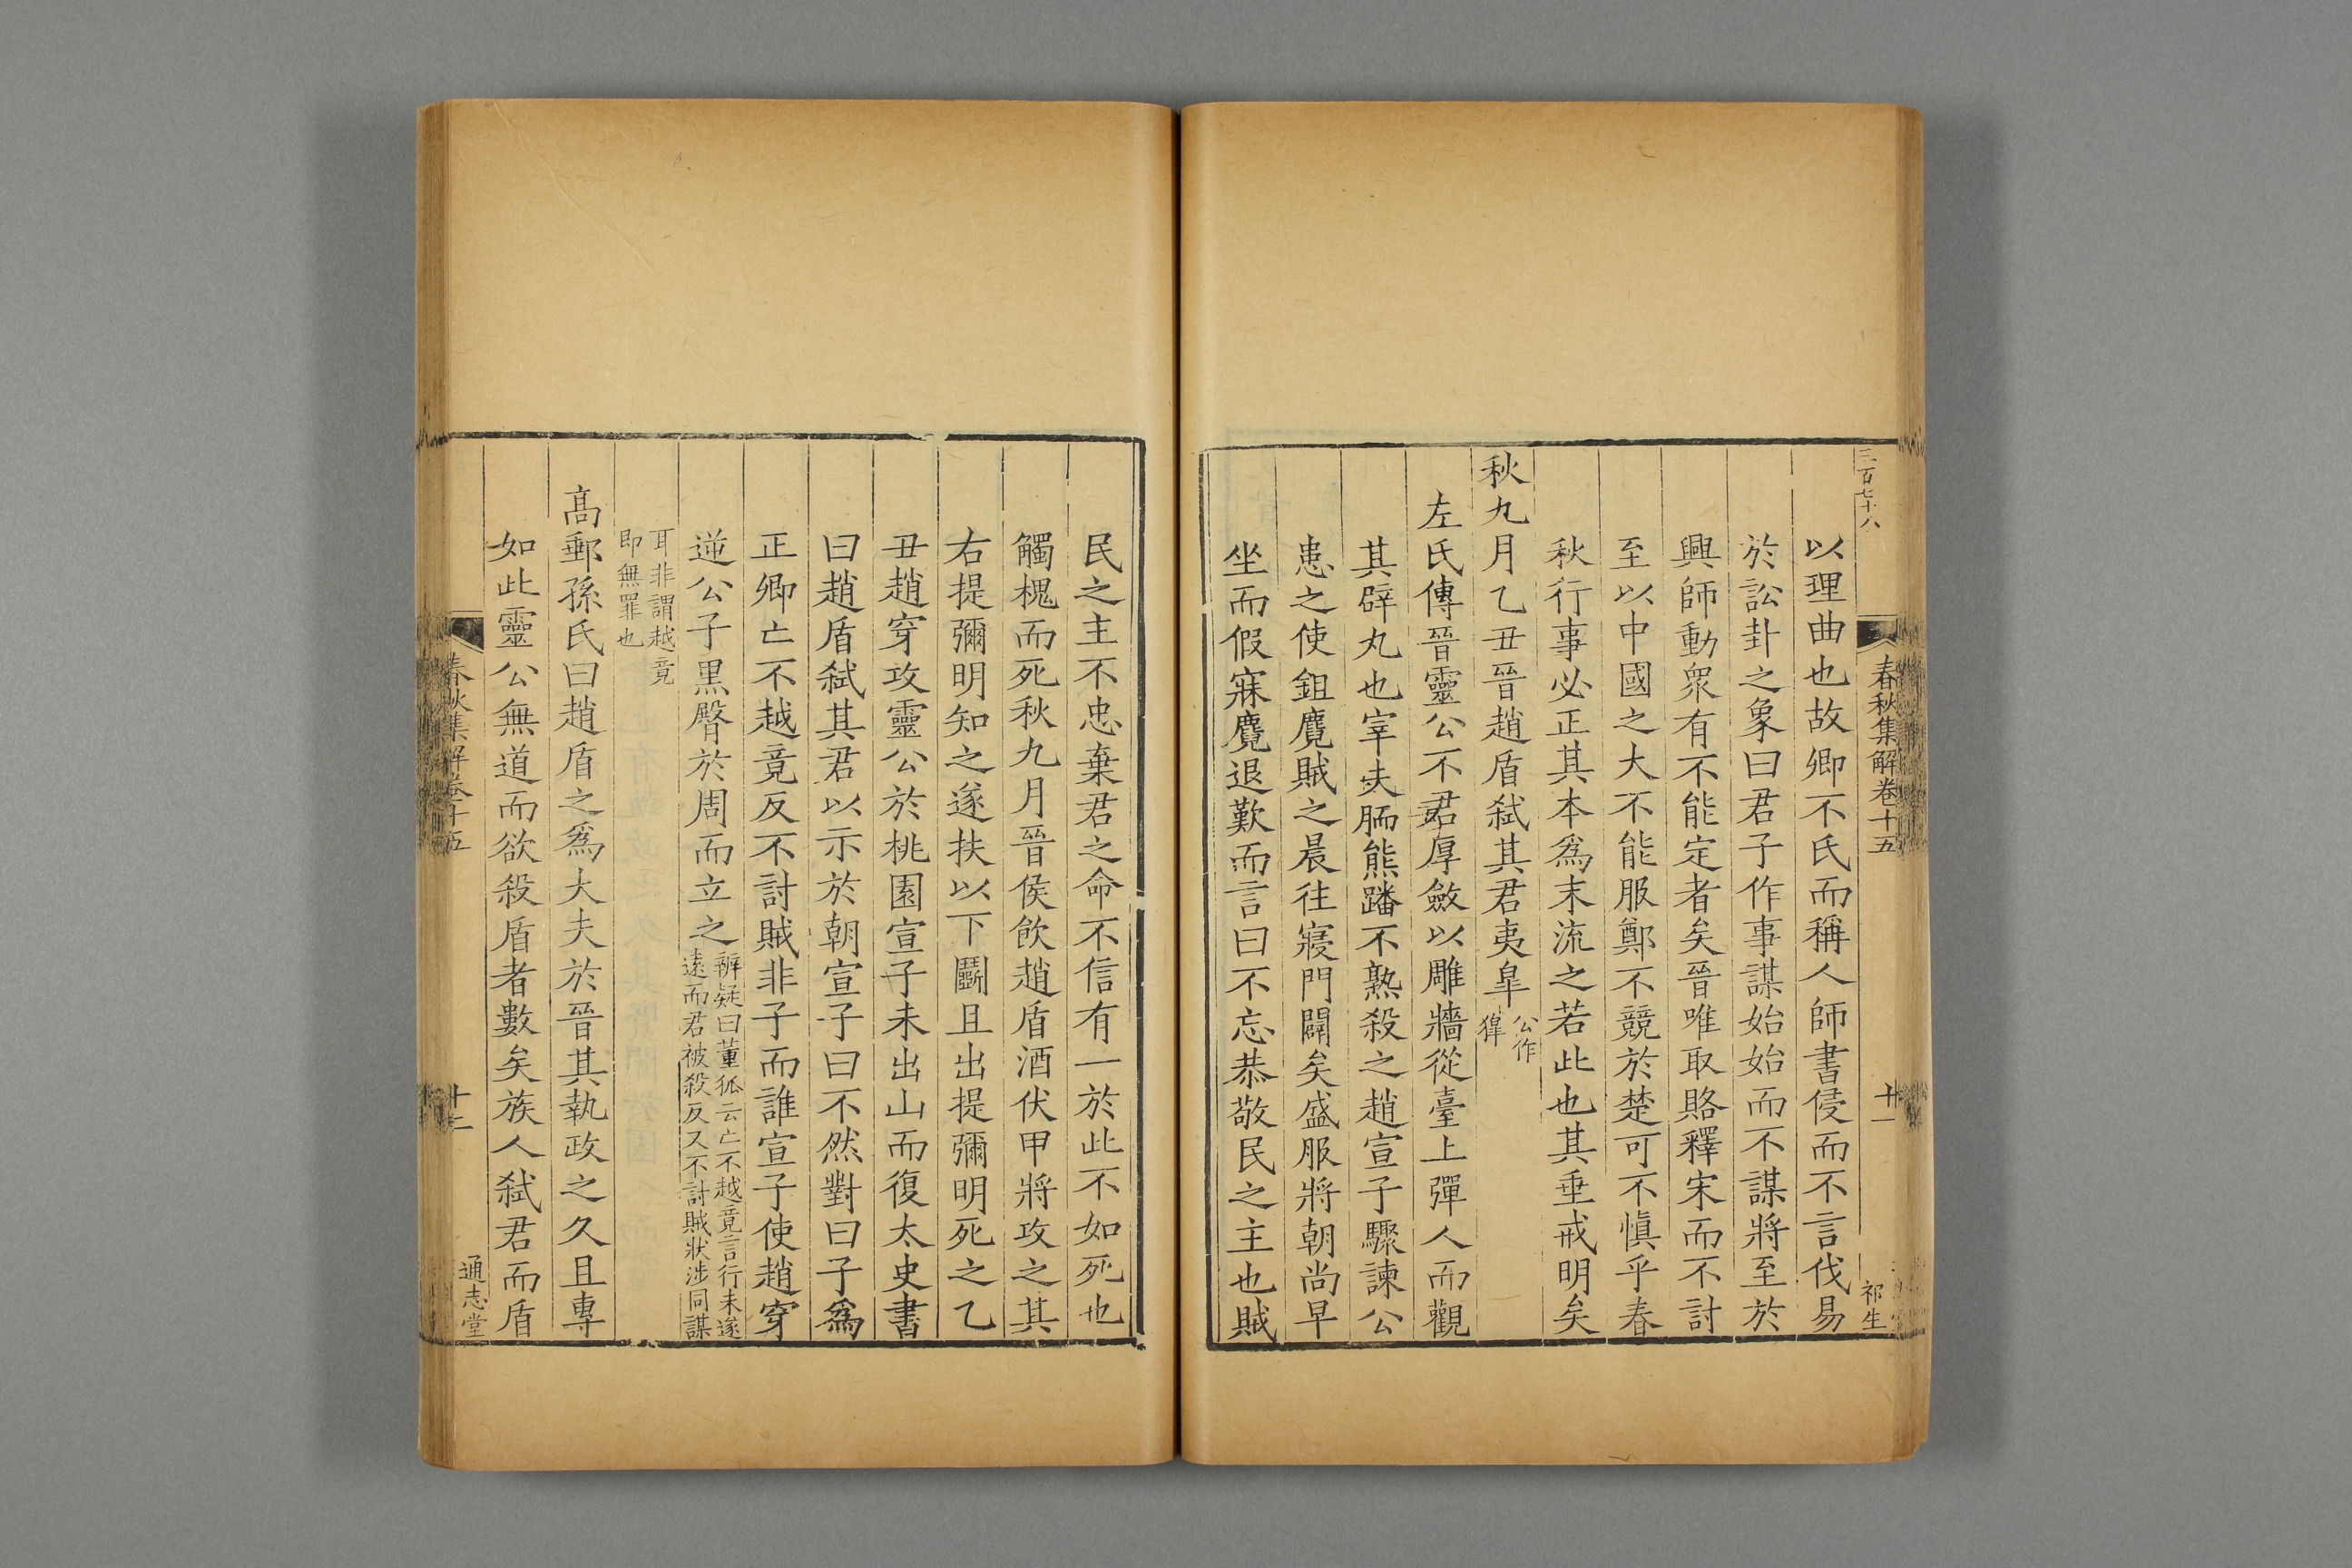 三百七十八
春秋集解卷十五
廿一
祁生
以理曲也故卿不氏而稱人師書侵而不言伐易
於訟卦之象曰君子作事謀始始而不謀將至於
興師動衆有不能定者矣晉唯取賂釋宋而不討
至以中國之大不能服鄭不競於楚可不慎乎春
秋行事必正其本爲末流之若此也其垂戒明矣
秋九月乙丑晉趙盾弑其君夷皐公作
獆
左氏傳晉靈公不君厚斂以雕牆從臺上彈人而觀
其辟丸也宰夫胹熊蹯不熟殺之趙宣子驟諫公
患之使鉏麑賊之晨往寢門闢矣盛服將朝尚早
坐而假寐麑退歎而言曰不忘恭敬民之主也賊
民之主不忠棄君之命不信有一於此不如死也
觸槐而死秋九月晉侯飲趙盾酒伏甲將攻之其
右提彌明知之遂扶以下鬭且出提彌明死之乙
丑趙穿攻靈公於桃園宣子未出山而復太史書
曰趙盾弑其君以示於朝宣子曰不然對曰子爲
正卿亡不越竟反不討賊非子而誰宣子使趙穿
逆公子黑臀於周而立之辨疑曰董狐云亡不越竟言行未遂
遠而君被殺反又不討賊狀涉同謀
耳非謂越竟
即無罪也
高郵孫氏曰趙盾之爲大夫於晉其執政之久且專
如此靈公無道而欲殺盾者數矣族人弑君而盾
春秋集解卷十五
通志堂